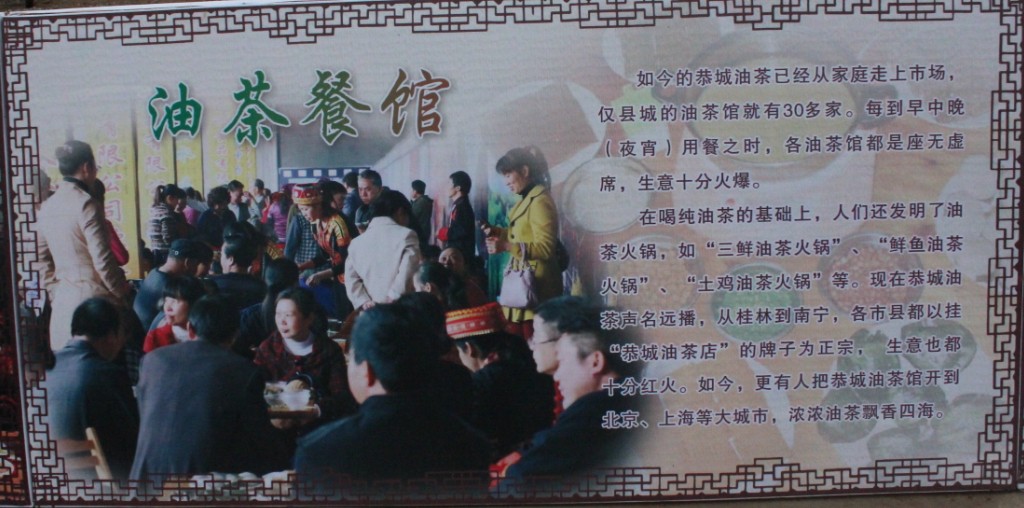 油茶餐馆
如今的恭城油茶已经从家庭走上市场，
仅县城的油茶馆就有30多家。每到早中晚
（夜宵）用餐之时，各油茶馆都是座无虚
席，生意十分火爆。
在喝纯油茶的基础上，人们还发明了油
茶火锅，如“三鲜油茶火锅”、“鲜鱼油茶
火锅”、“土鸡油茶火锅”等。现在恭城油
茶声名远播，从桂林到南宁，各市县都以挂
“恭城油茶店”的牌子为正宗， 生意也都
十分红火。如今，更有人把恭城油茶馆开到
北京、上海等大城市，浓浓油茶飘香四海。
限公司